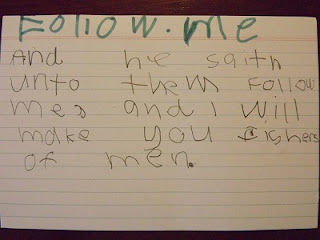 Follow. me
And he saith
unto them Follow
mes and I will
make you fishers
of men.